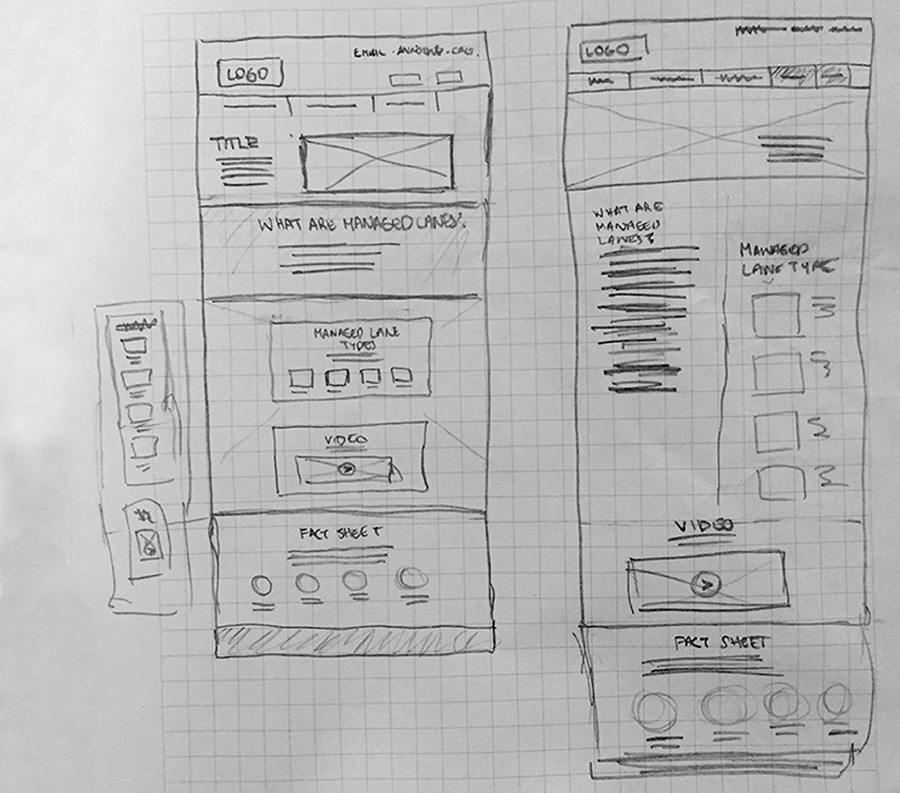 LOGO
EMAIL
TITLE
WHAT ARE MANAGED LANES?
MANAGED LANE
TYPES
VIDEO
FACT SHEET
LOGO
WHAT ARE
MANAGED
LANES?
MANAGED
LANE TYPE
VIDEO
FACT SHEET